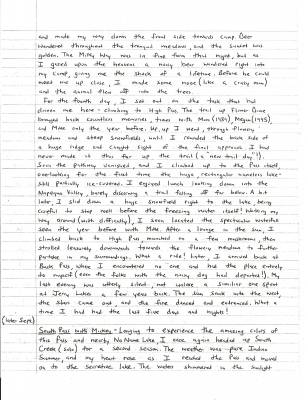 and made my way down the final side towards camp. Deer
wandered throughout the tranquil meadows and the sunset was
golden. The Milky Way was in fine form that night, but as
I gazed upon the heavens a noisy bear wandered right into
my camp, giving me the shock of a lifetime. Before he could
meet me up close, I made some noise (like a crazy man)
and the animal flew off into the trees.
For the fourth day, I set out on the task that had
driven me here - climbing to High Pass. The trail up Flower Gap
brought back countless memories, times with Mom (1984), Megan (1995)
and Mike only the year before. Up, up I went, through flowery
meadows and steep snowfields, until I rounded the back side of
a huge ridge and caught sight of the final approach. I had
never made it this far up the trail (a new trail day!).
Soon the pathway vanished, and I climbed up to the Pass itself,
overlooking for the first time the huge, rectangular nameless lake
still partially ice-covered. I enjoyed lunch looking down into the
Napeequa Valley, barely discerning a trail far below. A bit
later, I slid down a huge snowfield right to the lake, being
careful to stop well before the freezing water itself! Making my
way around (with difficulty), I soon located the spectacular waterfall
seen the year before with Mike. After a lounge in the sun, I
climbed back to High Pass, munched to a few mushrooms, then
strolled leisurely downwards towards the flowery meadows to further
partake in my surroundings. What a ride! Later, I arrived back at
Buck Pass, where I encountered no one and had the place entirely
to myself (even the folks with the noisy dog had departed!). My
last evening was utterly silent, not unlike a similar one spent
at Jerry Lakes a few years back. The sun sank into the west,
the stars came out, and the fire danced and entranced. What a
time I had had the last five days and nights!
(later Sept.)
South Pass with Mickey - Longing to experience the amazing colors of
this Pass and nearby No Name Lake, I once again headed up South
Creek (solo) for a second season. The weather was pure Indian
Summer, and my heart rose as I neared the Pass and moved
on to the secretive lake. The waters shimmered in the sunlight